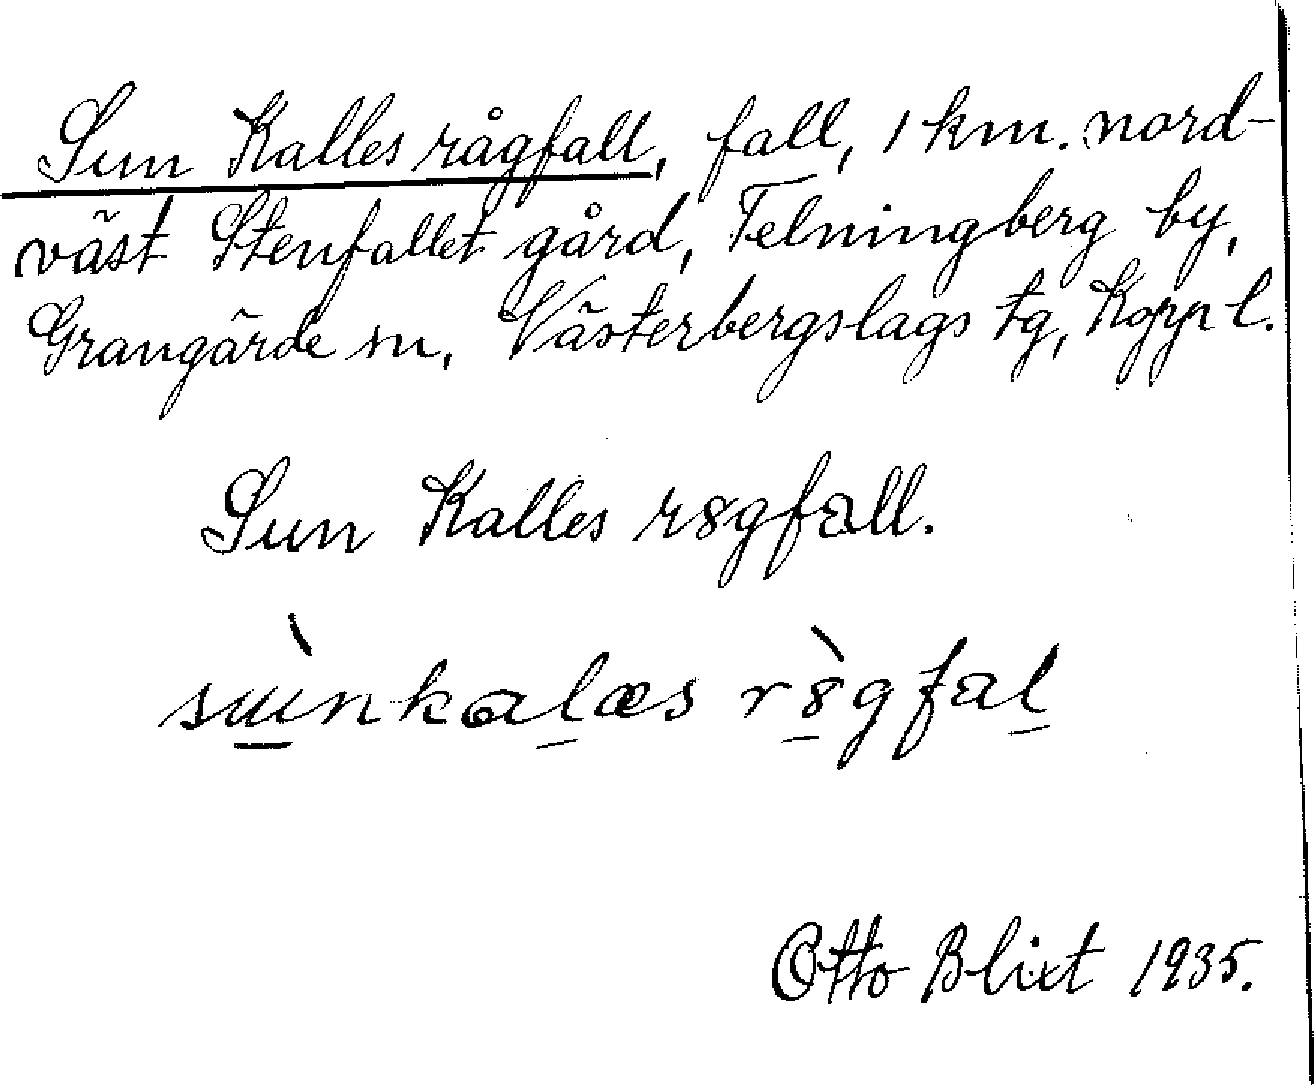 Sun Kalles rågfall, fall, 1 km. nord-
väst Stenfallet gård, Telningberg by,
Grangärde sn, Västerbergslags tg, Kopp l.
Sun Kalles r8gfall.
sùnkalæs r8̀gfal
Otto Blixt 1935.